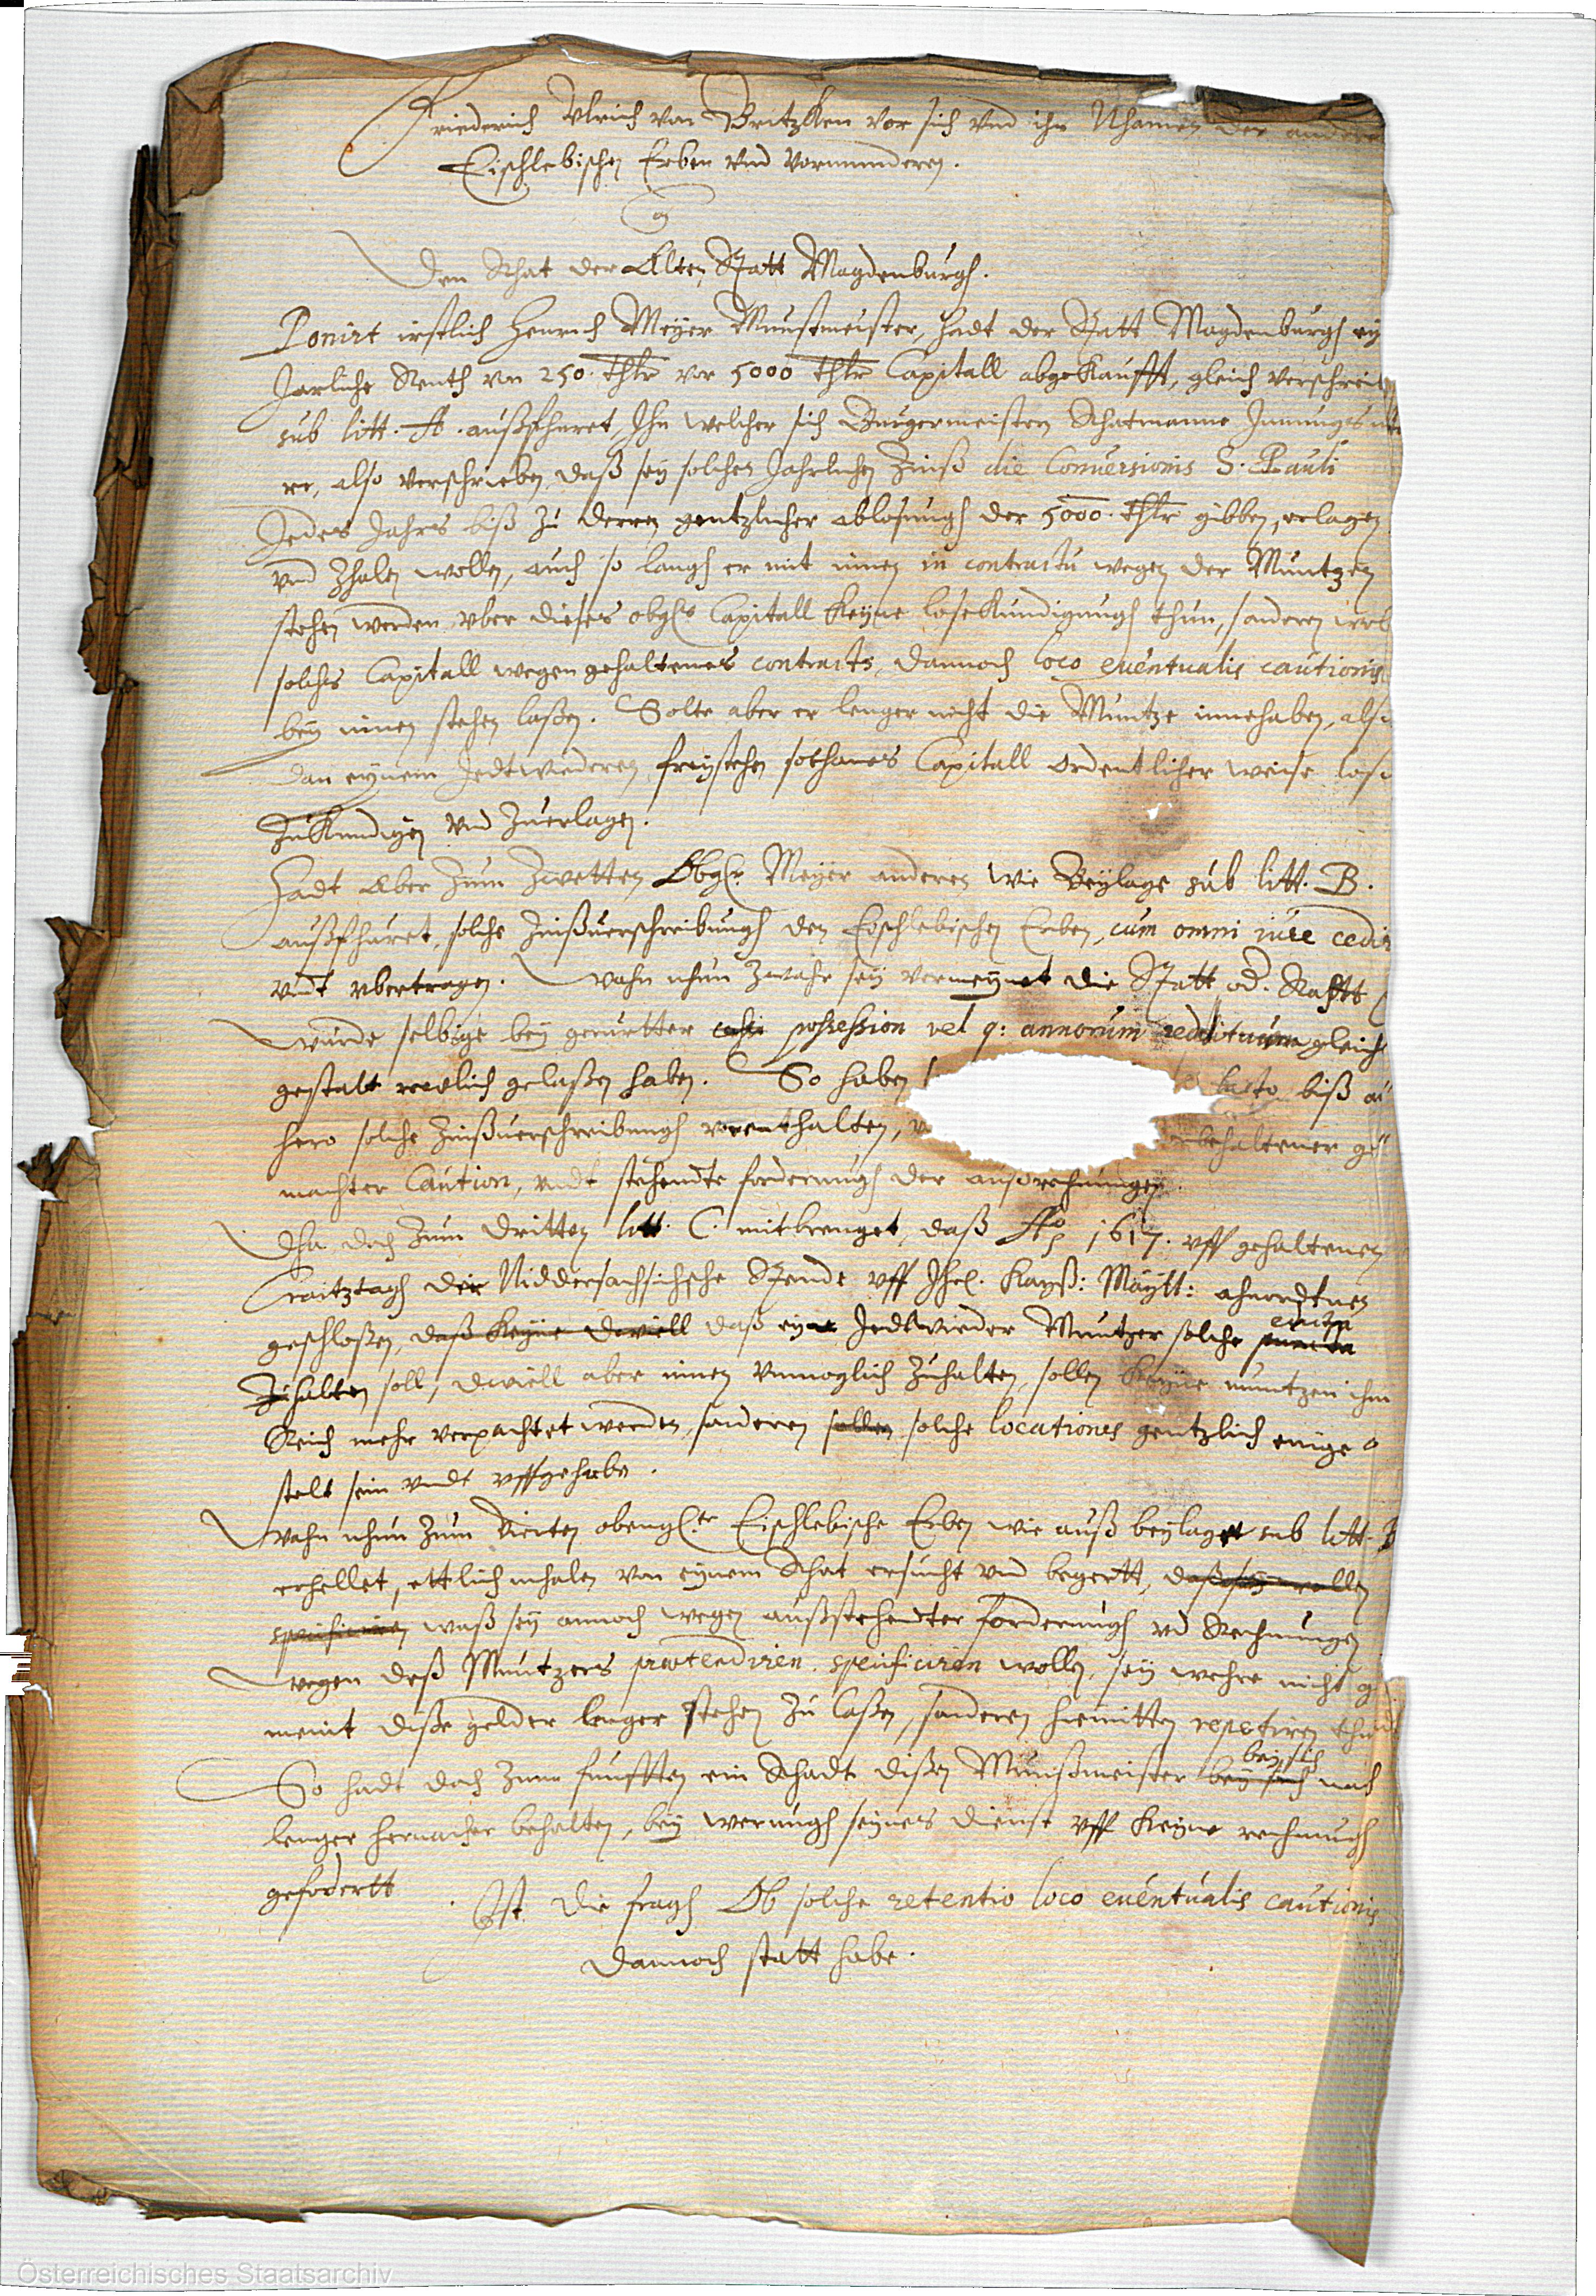 Friederich Ulrich von Britzken vor sich vnd ihn Nhamen der anderen
Eischlebischen Erben vnd Vormunderen.
Den Rhat der Alten Statt Magdenburgh.
Ponirt irstlich Henrich Meyer Muntzmeister, hadt der Statt Magdenburgh ey
Jarliche Renth von 250 thlr vor 5000 thlr Capitall abgekaufft, gleich verschreib
sub litt. A. außfhuret, Ihn welcher sich Burgermeistern Rhatmanne Innungs
re, also verschrieben, daß sey solchen Jahrlichen Zinß die Conversionis S. Pauli
Jedes Jahrs biß zu deren gentzlicher ablosungh der 5000 thlr gibben, erlagen
vnd Zhalen wollen, auch so langh er mit innen in contractu wegen der Muntzen
stehen werden vber dieses obgl. Capitall keyne loseKundigungh thun, sonderen
solches Capitall wegen gehaltenes contracts, dannoch loco eventualis cautionis
bey innen stehen laßen. Solte aber er lenger nicht die Muntze innehaben, also
dan eynem Jedtwiederen freystehen solhanes Capitall Ordentlicher weise lose
Zukundigen vnd Zuerlagen.
Hadt Aber Zum Zwetten Obgl. Meyer anderen wie Beylage sub litt. B.
außfhuret, solche Zinßverschreibungh den Eischlebischen Erben, cum omni iure cedirt
vndt vbertragen. Wahn nhun Zwahr sey vermeynet die Statt od. Rahtt
wurde selbige bey gerurtter possession vel q: annorum reddituum gleich
gestalt reedlich gelaßen haben. So haben facto biß an
hero solche Zinßverschreibungh vorenthalten, vorbehaltener ge
machter Caution, vndt stehendte forderungh der außrechnungen.
Ihn doch Zum dritten litt. C. mitbrenget, daß Ao 1617. vff gehaltenen
Craitztagh der Niddersachsichsche Stende vff Ihrl. Kayß: Maytt: ahnordtnen
geschloßen, daß keyne dwiell daß eyn Jedtwieder Muntzer solche
Zihalten soll, dwiell aber innen vnmoglich Zuhalten, sollen keyne muntzen ihm
Reich mehr verpachtet werden, sonderen sollen solche locationes gentzlich einge
stelt sein vndt vffgehabe.
Wahn nhun Zum Vierten obengl.te Eischlebische Erben wie auß beylaget sub litt. B
erhellet, ettlichmhalen von eynem Rhat ersucht vnd begertt, daß sey wollen
specificiren waß sey annoch wegen außstehendter forderungh vnd Rechnungen
wegen deß Muntzers praetendiren specificiren wollen, sey wehre nicht g
meint diße gelder lenger stehen Zu laßen, sonderen hiemitten repetiren thu
bey sich
So hadt doch Zum funfften ein Rhadt dißen Muntzmeister bey sich noch
lenger hernacher behalten, bey werungh seynes dienst vff keyne rechnungh
gefodertt
Ist die fragh Ob solche retentio loco eventualis cautionis
dannoch statt habe.
Österreichisches Staatsarchiv